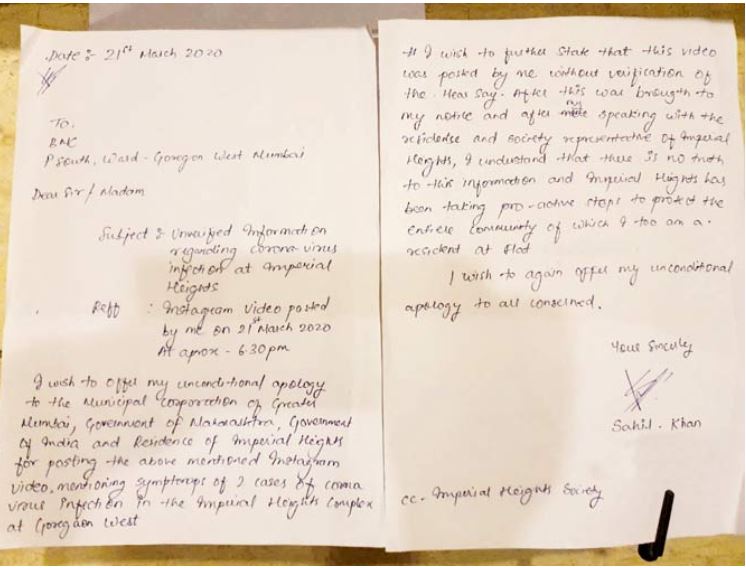 Date :- 21st March 2020
To,
BMC
P South, Ward - Goregon West Mumbai
Dear Sir / Madam
Subject : Unveified Information
regarding corona virus
infection at Imperial
Heights
Reff : Instagram Video posted
by me on 21st March 2020
At aprox - 6.30 pm
I wish to offer my unconditional apology
to the Municipal corporation of Greater
Mumbai, Government of Maharashtra, Government
of India and Residence of Imperial Heights
for posting the above mentioned Instagram
video, mentioning symptomps of 2 cases of corona
virus infection in the Imperial Heights Complex
at Goregaon West
I wish to further state that this video
was posted by me without verification of
the Hear Say. After this was brought to
my notice and after my speaking with the
residense and society representative of Imperial
Heights, I understand that there is no truth
to this information and Imperial Heights has
been taking pro-active steps to protect the
entire community of which I too am a
resident at flat
I wish to again offer my unconditional
apology to all conserned.
Your Sincerly
Sahil. Khan
cc. Imperial Heights Society